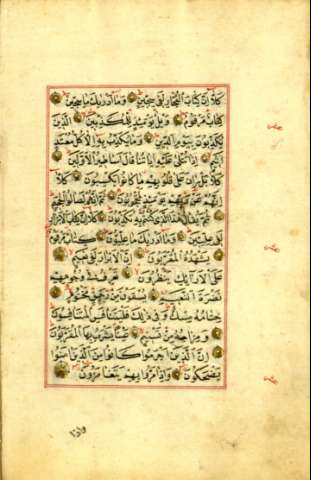 كَلَّا إِنَّ كِتَابَ الْفُجَّارِ لَفِي سِجِّينٍ وَمَا أَدْرٰيكَ مَا سِجِّينٌ
كِتَابٌ مَرْقُومٌ وَيْلٌ يَوْمَئِذٍ لِلْمُكَذِّبِينَ الَّذِينَ
يُكَذِّبُونَ بِيَوْمِ الدِّينِ وَمَا يُكَذِّبُ بِهِ إِلَّا كُلُّ مُعْتَدٍ
أَثِيمٍ إِذَا تُتْلَى عَلَيْهِ اٰيَاتُنَا قَالَ أَسَاطِيرُ الْأَوَّلِينَ
كَلَّا بَلْ رَانَ عَلَى قُلُوبِهِمْ مَا كَانُوا يَكْسِبُونَ كَلَّا
إِنَّهُمْ عَنْ رَبِّهِمْ يَوْمَئِذٍ لَمَحْجُوبُونَ ثُمَّ إِنَّهُمْ لَصَالُوا الْجَحِيمِ
ثُمَّ يُقَالُ هٰذَا الَّذِي كُنْتُمْ بِهِ تُكَذِّبُونَ كَلَّا إِنَّ كِتَابَ الْأَبْرَارِ
لَفِي عِلِّيِّينَ وَمَا أَدْرٰيكَ مَا عِلِّيُّونَ كِتَابٌ مَرْقُومٌ
يَشْهَدُهُ الْمُقَرَّبُونَ إِنَّ الْأَبْرَارَ لَفِي نَعِيمٍ
عَلَى الْأَرَائِكِ يَنْظُرُونَ تَعْرِفُ فِي وُجُوهِهِمْ
نَضْرَةَ النَّعِيمِ يُسْقَوْنَ مِنْ رَحِيقٍ مَخْتُومٍ
خِتَامُهُ مِسْكٌ وَفِي ذٰلِكَ فَلْيَتَنَافَسِ الْمُتَنَافِسُونَ
وَمِزَاجُهُ مِنْ تَسْنِيمٍ عَيْنًا يَشْرَبُ بِهَا الْمُقَرَّبُونَ
إِنَّ الَّذِينَ أَجْرَمُوا كَانُوا مِنَ الَّذِينَ اٰمَنُوا
يَضْحَكُونَ وَإِذَا مَرُّوا بِهِمْ يَتَغَامَزُونَ
واذا